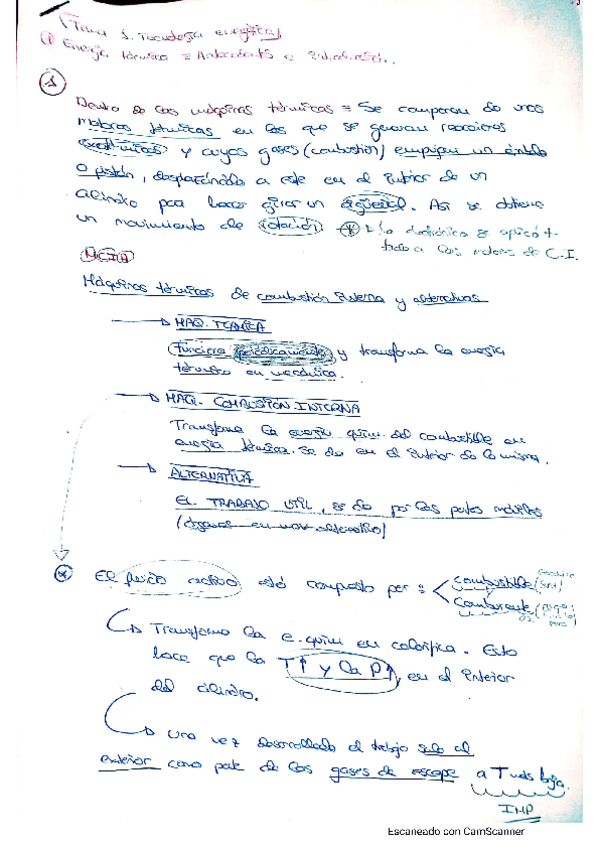 Tema 5. Tecnología energética
① Energía térmica = Antecedentes e Introducción.
①
Dentro de las máquinas térmicas = Se componen de unos
motores térmicos en los que se generan reacciones
exotérmicas y cuyos gases (combustión) empujan un émbolo
o pistón, desplazándolo a este en el interior de un
cilindro para hacer girar un cigüeñal. Así se obtiene
un movimiento de rotación
todo a los motores de C.I.
MCIA
Máquinas térmicas de combustión interna y alternativas
→ MAQ. TERMICA
funciona periódicamente y transforma la energía
térmica en mecánica.
→ MAQ. COMBUSTIÓN INTERNA
Transforma la energía quím. del combustible en
energía térmica. Se da en el interior de la misma.
→ ALTERNATIVA
EL TRABAJO UTIL, se da por las partes móviles
(órganos en mov. alternativo)
* El fluido está compuesto por : combustible
Comburente
↳ Transforma la e. quím en calorífica. Esto
hace que la T↑ y la P↑, en el interior
del cilindro.
↳ Una vez desarrollado el trabajo sale al
exterior como parte de los gases de escape a T más baja.
IMP
Escaneado con CamScanner